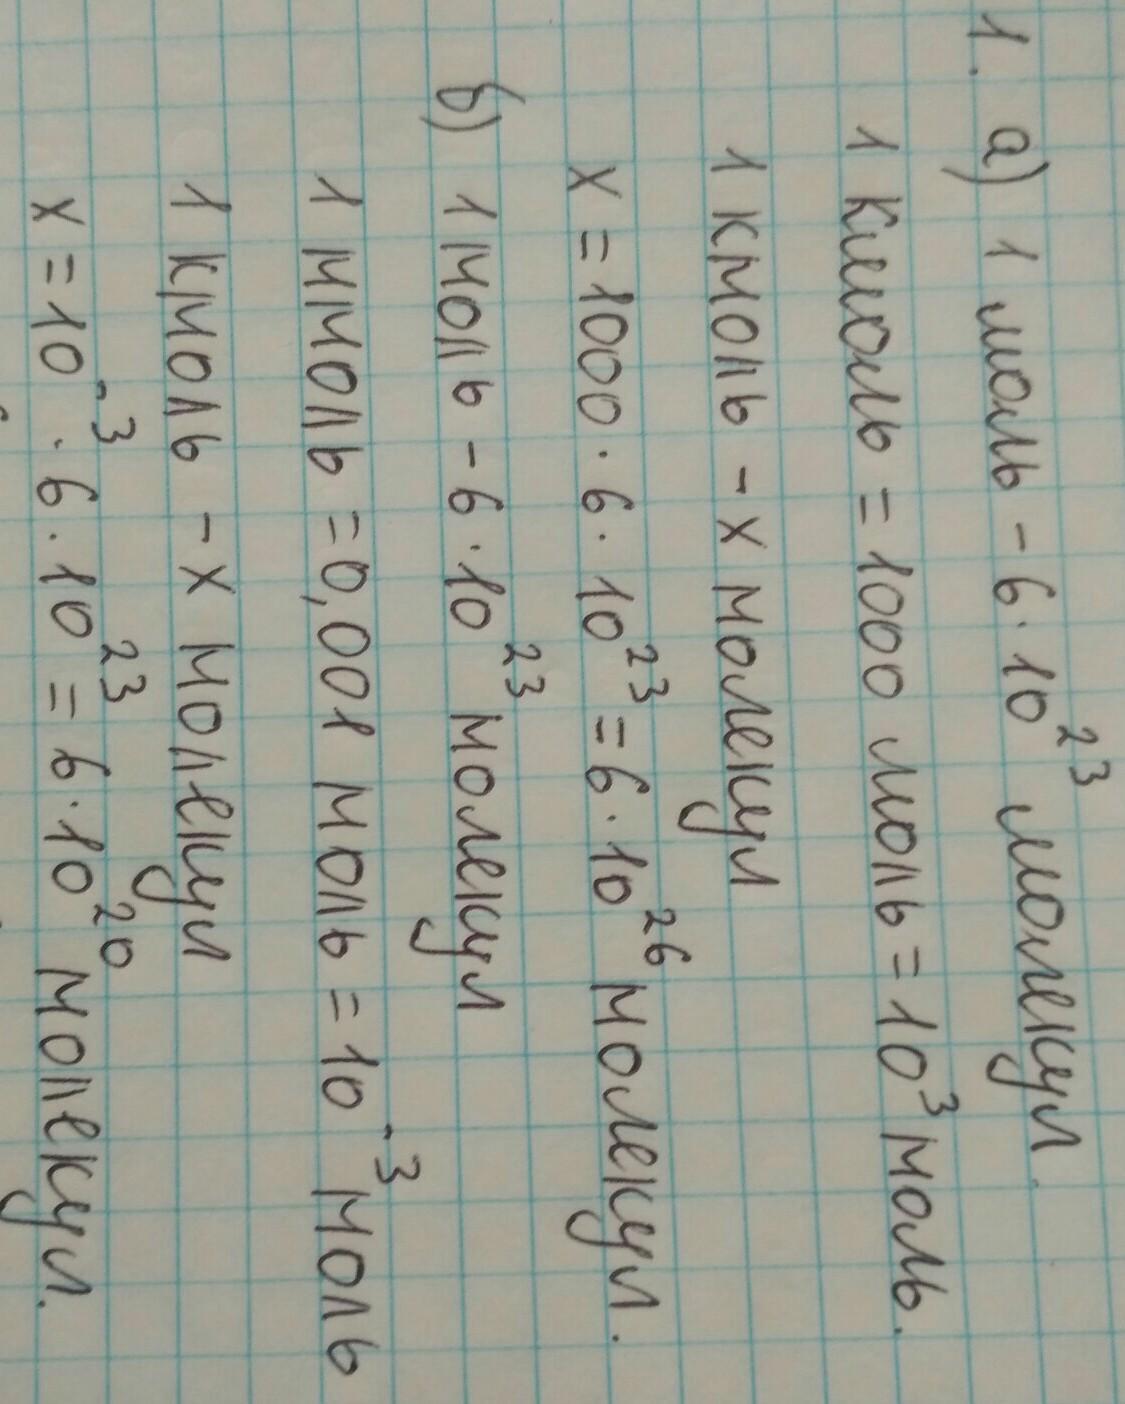 1. а) 1 моль – 6 · 10²³ молекул.
1 кмоль = 1000 моль = 10³ моль.
1 кмоль – х молекул
х = 1000 · 6 · 10²³ = 6 · 10²⁶ молекул.
б) 1 моль – 6 · 10²³ молекул
1 ммоль = 0,001 моль = 10⁻³ моль
1 кмоль – х молекул
х = 10⁻³ · 6 · 10²³ = 6 · 10²⁰ молекул.